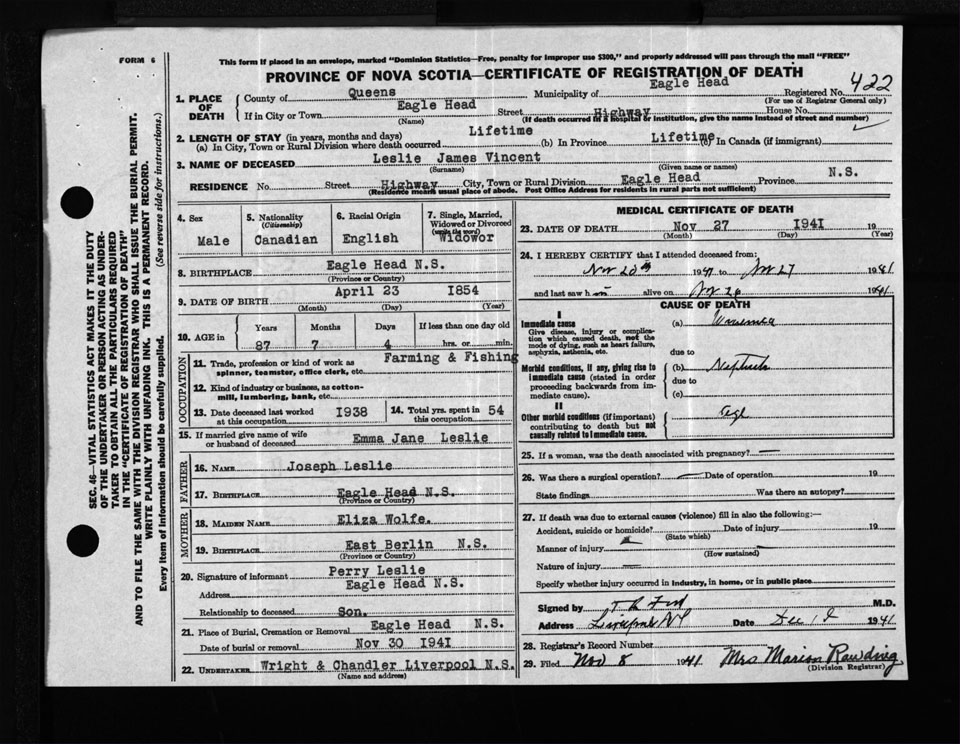 FORM 6
This form if placed in an envelope, marked "Dominion Statistics—Free, penalty for improper use $300," and properly addressed will pass through the mail "FREE"
PROVINCE OF NOVA SCOTIA—CERTIFICATE OF REGISTRATION OF DEATH
422
1. PLACE OF DEATH
County of Queens Municipality of Eagle Head Registered No.
(For use of Registrar General only)
If in City or Town Eagle Head Street Highway House No.
(Name) (If death occurred in a hospital or institution, give the name instead of street and number)
2. LENGTH OF STAY (in years, months and days)
(a) In City, Town or Rural Division where death occurred Lifetime (b) In Province Lifetime (c) In Canada (if immigrant)
3. NAME OF DECEASED Leslie James Vincent
(Surname) (Given name or names)
RESIDENCE No. Street Highway City, Town or Rural Division Eagle Head Province N.S.
(Residence means usual place of abode. Post Office Address for residents in rural parts not sufficient)
4. Sex Male
5. Nationality (Citizenship) Canadian
6. Racial Origin English
7. Single, Married, Widowed or Divorced (write the word) Widowor
8. BIRTHPLACE Eagle Head N.S.
(Province or Country)
9. DATE OF BIRTH April 23 1854
(Month) (Day) (Year)
10. AGE in Years 87 Months 7 Days 4 If less than one day old hrs. or min.
OCCUPATION
11. Trade, profession or kind of work as spinner, teamster, office clerk, etc. Farming & Fishing
12. Kind of industry or business, as cotton-mill, lumbering, bank, etc.
13. Date deceased last worked at this occupation 1938
14. Total yrs. spent in this occupation 54
15. If married give name of wife or husband of deceased Emma Jane Leslie
FATHER
16. NAME Joseph Leslie
17. BIRTHPLACE Eagle Head N.S.
(Province or Country)
MOTHER
18. MAIDEN NAME Eliza Wolfe.
19. BIRTHPLACE East Berlin N.S.
(Province or Country)
20. Signature of informant Perry Leslie
Address Eagle Head N.S.
Relationship to deceased Son.
21. Place of Burial, Cremation or Removal Eagle Head N.S.
Date of burial or removal Nov 30 1941
22. UNDERTAKER Wright & Chandler Liverpool N.S.
(Name and address)
MEDICAL CERTIFICATE OF DEATH
23. DATE OF DEATH Nov 27 1941 19
(Month) (Day) (Year)
24. I HEREBY CERTIFY that I attended deceased from:
Nov 20th 1941 to Nov 27 1941
and last saw him alive on Nov 26 1941
CAUSE OF DEATH
I
Immediate cause
Give disease, injury or complication which caused death, not the mode of dying, such as heart failure, asphyxia, asthenia, etc.
(a)
due to
Morbid conditions, if any, giving rise to immediate cause (stated in order proceeding backwards from immediate cause).
(b)
due to
(c)
II
Other morbid conditions (if important) contributing to death but not causally related to immediate cause.
Age
25. If a woman, was the death associated with pregnancy?
26. Was there a surgical operation? Date of operation 19
State findings Was there an autopsy?
27. If death was due to external causes (violence) fill in also the following:—
Accident, suicide or homicide? Date of injury 19
(State which)
Manner of injury
(How sustained)
Nature of injury
Specify whether injury occurred in industry, in home, or in public place
Signed by M.D.
Address Liverpool NS Date Dec 1941
28. Registrar's Record Number
29. Filed Nov 8 1941 Mrs Marion Rawding
(Division Registrar)
SEC. 46—VITAL STATISTICS ACT MAKES IT THE DUTY
OF THE UNDERTAKER OR PERSON ACTING AS UNDER-
TAKER TO OBTAIN ALL THE PARTICULARS REQUIRED
IN THE "CERTIFICATE OF REGISTRATION OF DEATH"
AND TO FILE THE SAME WITH THE DIVISION REGISTRAR WHO SHALL ISSUE THE BURIAL PERMIT.
WRITE PLAINLY WITH UNFADING INK. THIS IS A PERMANENT RECORD.
Every item of information should be carefully supplied. (See reverse side for instructions.)